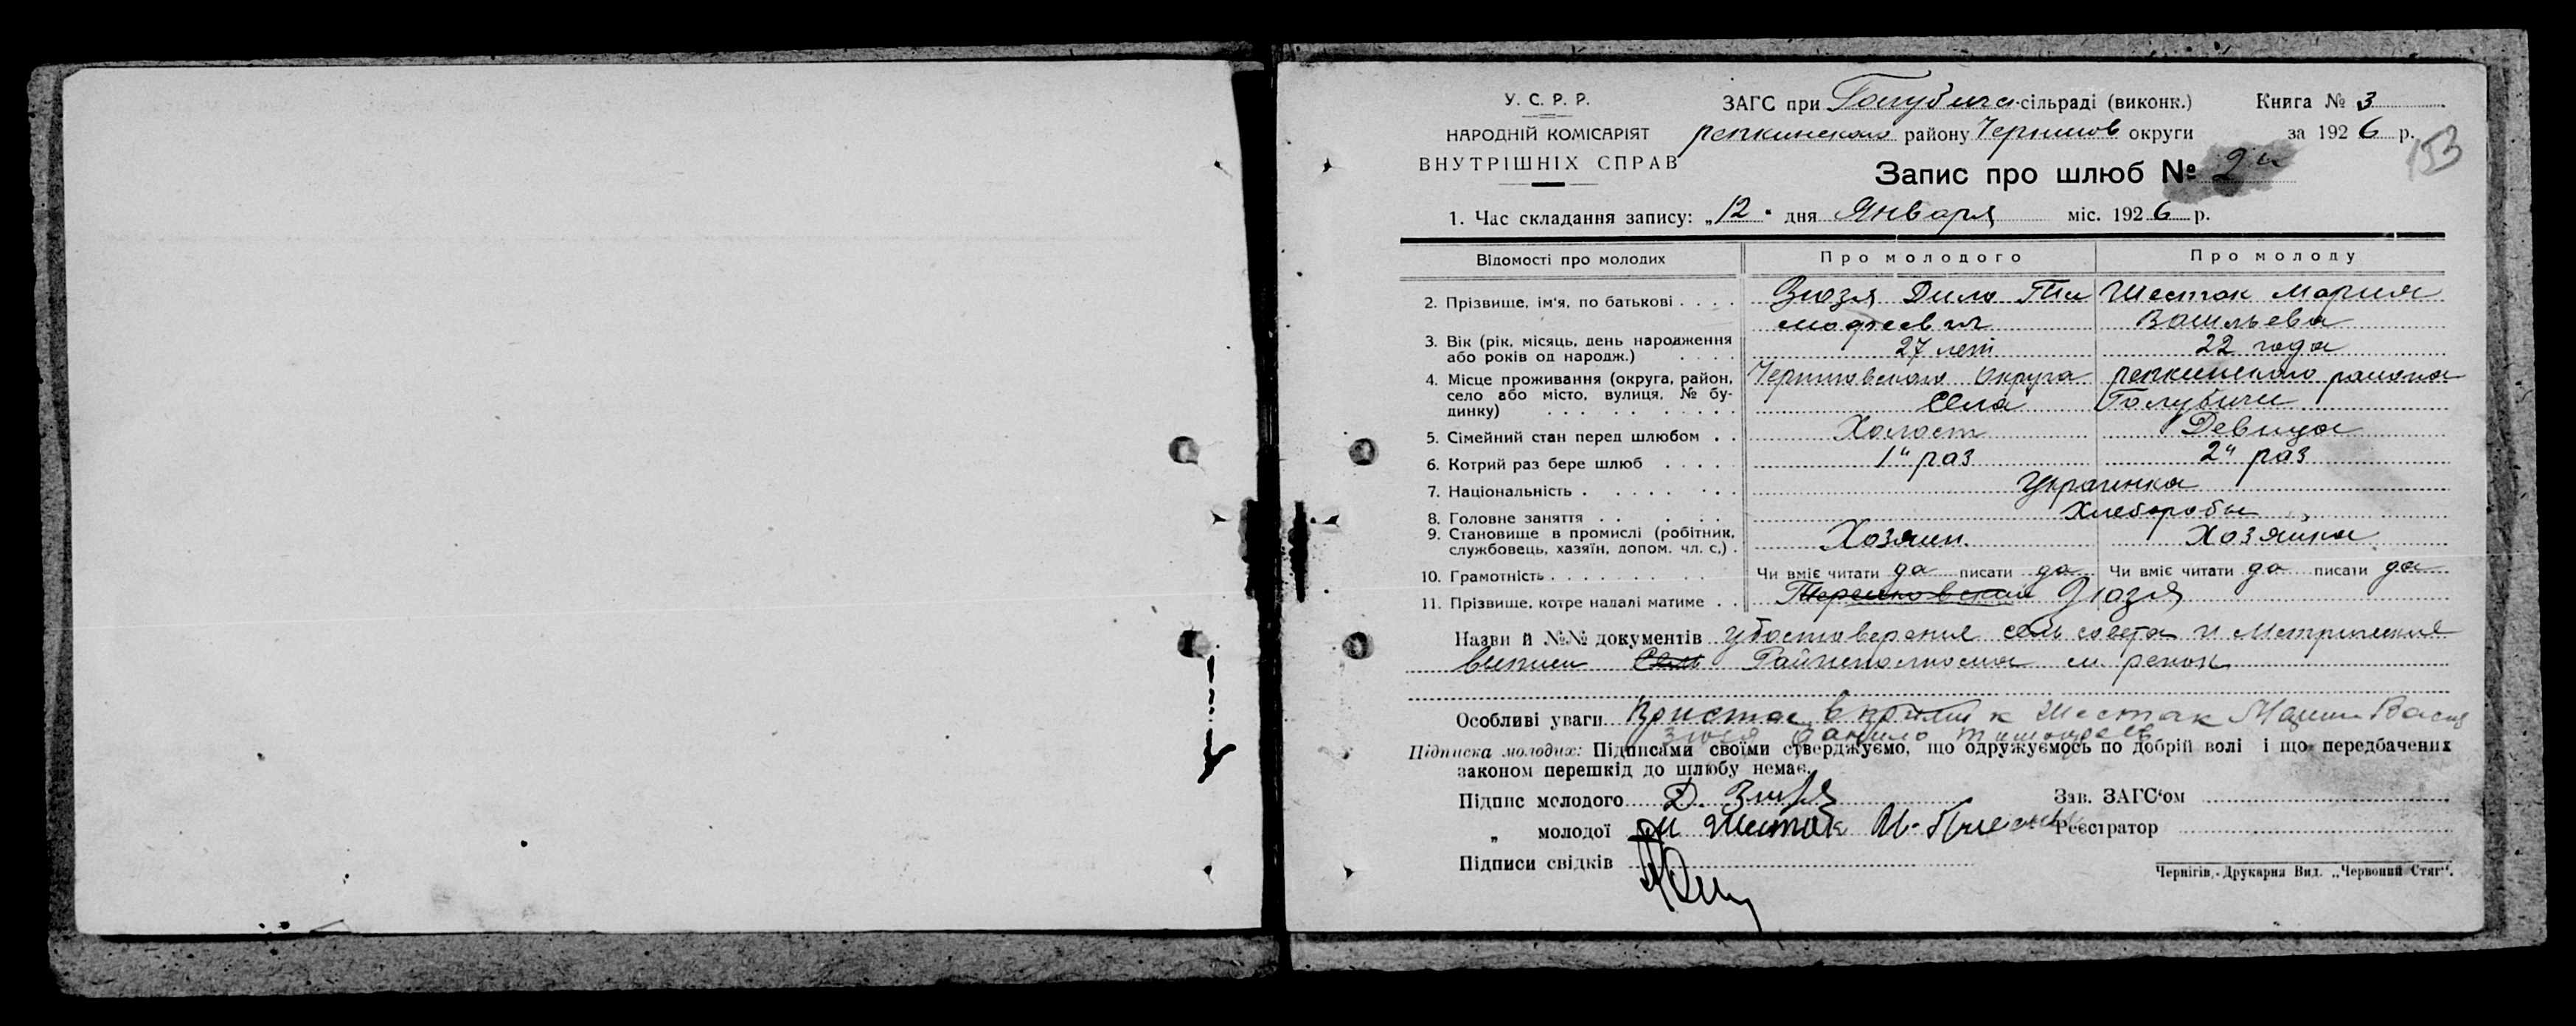 У. С. Р. Р.
НАРОДНІЙ КОМІСАРІЯТ
ВНУТРІШНІХ СПРАВ
ЗАГС при Голубичи сільраді (виконк.) Книга № 3
репкинского району Чернигов округи за 1926 р.
153
Запис про шлюб № 2й
1. Час складання запису: „12" дня Января міс. 1926 р.
Відомості про молодих Про молодого Про молоду
2. Прізвище, ім'я, по батькові . . . . Зюзя Дило Тимофеевич Шесток Мария Васильева
3. Вік (рік, місяць, день народження
або років од народж.) . . . . 27 лет 22 года
4. Місце проживання (округа, район, Черниговского Округа репкинского района
село або місто, вулиця, № бу- Села Голубичи
динку) . . . . . . . . .
5. Сімейний стан перед шлюбом . . Холост Девица
6. Котрий раз бере шлюб . . . . 1й раз 2й раз
7. Національність . . . . . . . . Украинка
8. Головне заняття . . . . . . Хлеборобы
9. Становище в промислі (робітник,
службовець, хазяїн, допом. чл. с.) . Хозяин Хозяйка
10. Грамотність . . . . . . . Чи вміє читати да писати да Чи вміє читати да писати да
11. Прізвище, котре надалі матиме . . Зюзя
Назви й №№ документів Удостоверения сель совета и Метрические
выписи м. репок
Особливі уваги Пристал в к Шестак Марии Васил
Зюзя Данило Тимофеев
Підписка молодих: Підписами своїми стверджуємо, що одружуємось по добрій волі і що передбачених
законом перешкід до шлюбу немає.
Підпис молодого Д. Зюзя Зав. ЗАГС'ом
„ молодої М Шестак Реєстратор
Підписи свідків
Чернігів,-Друкарня Вид. „Червоний Стяг".